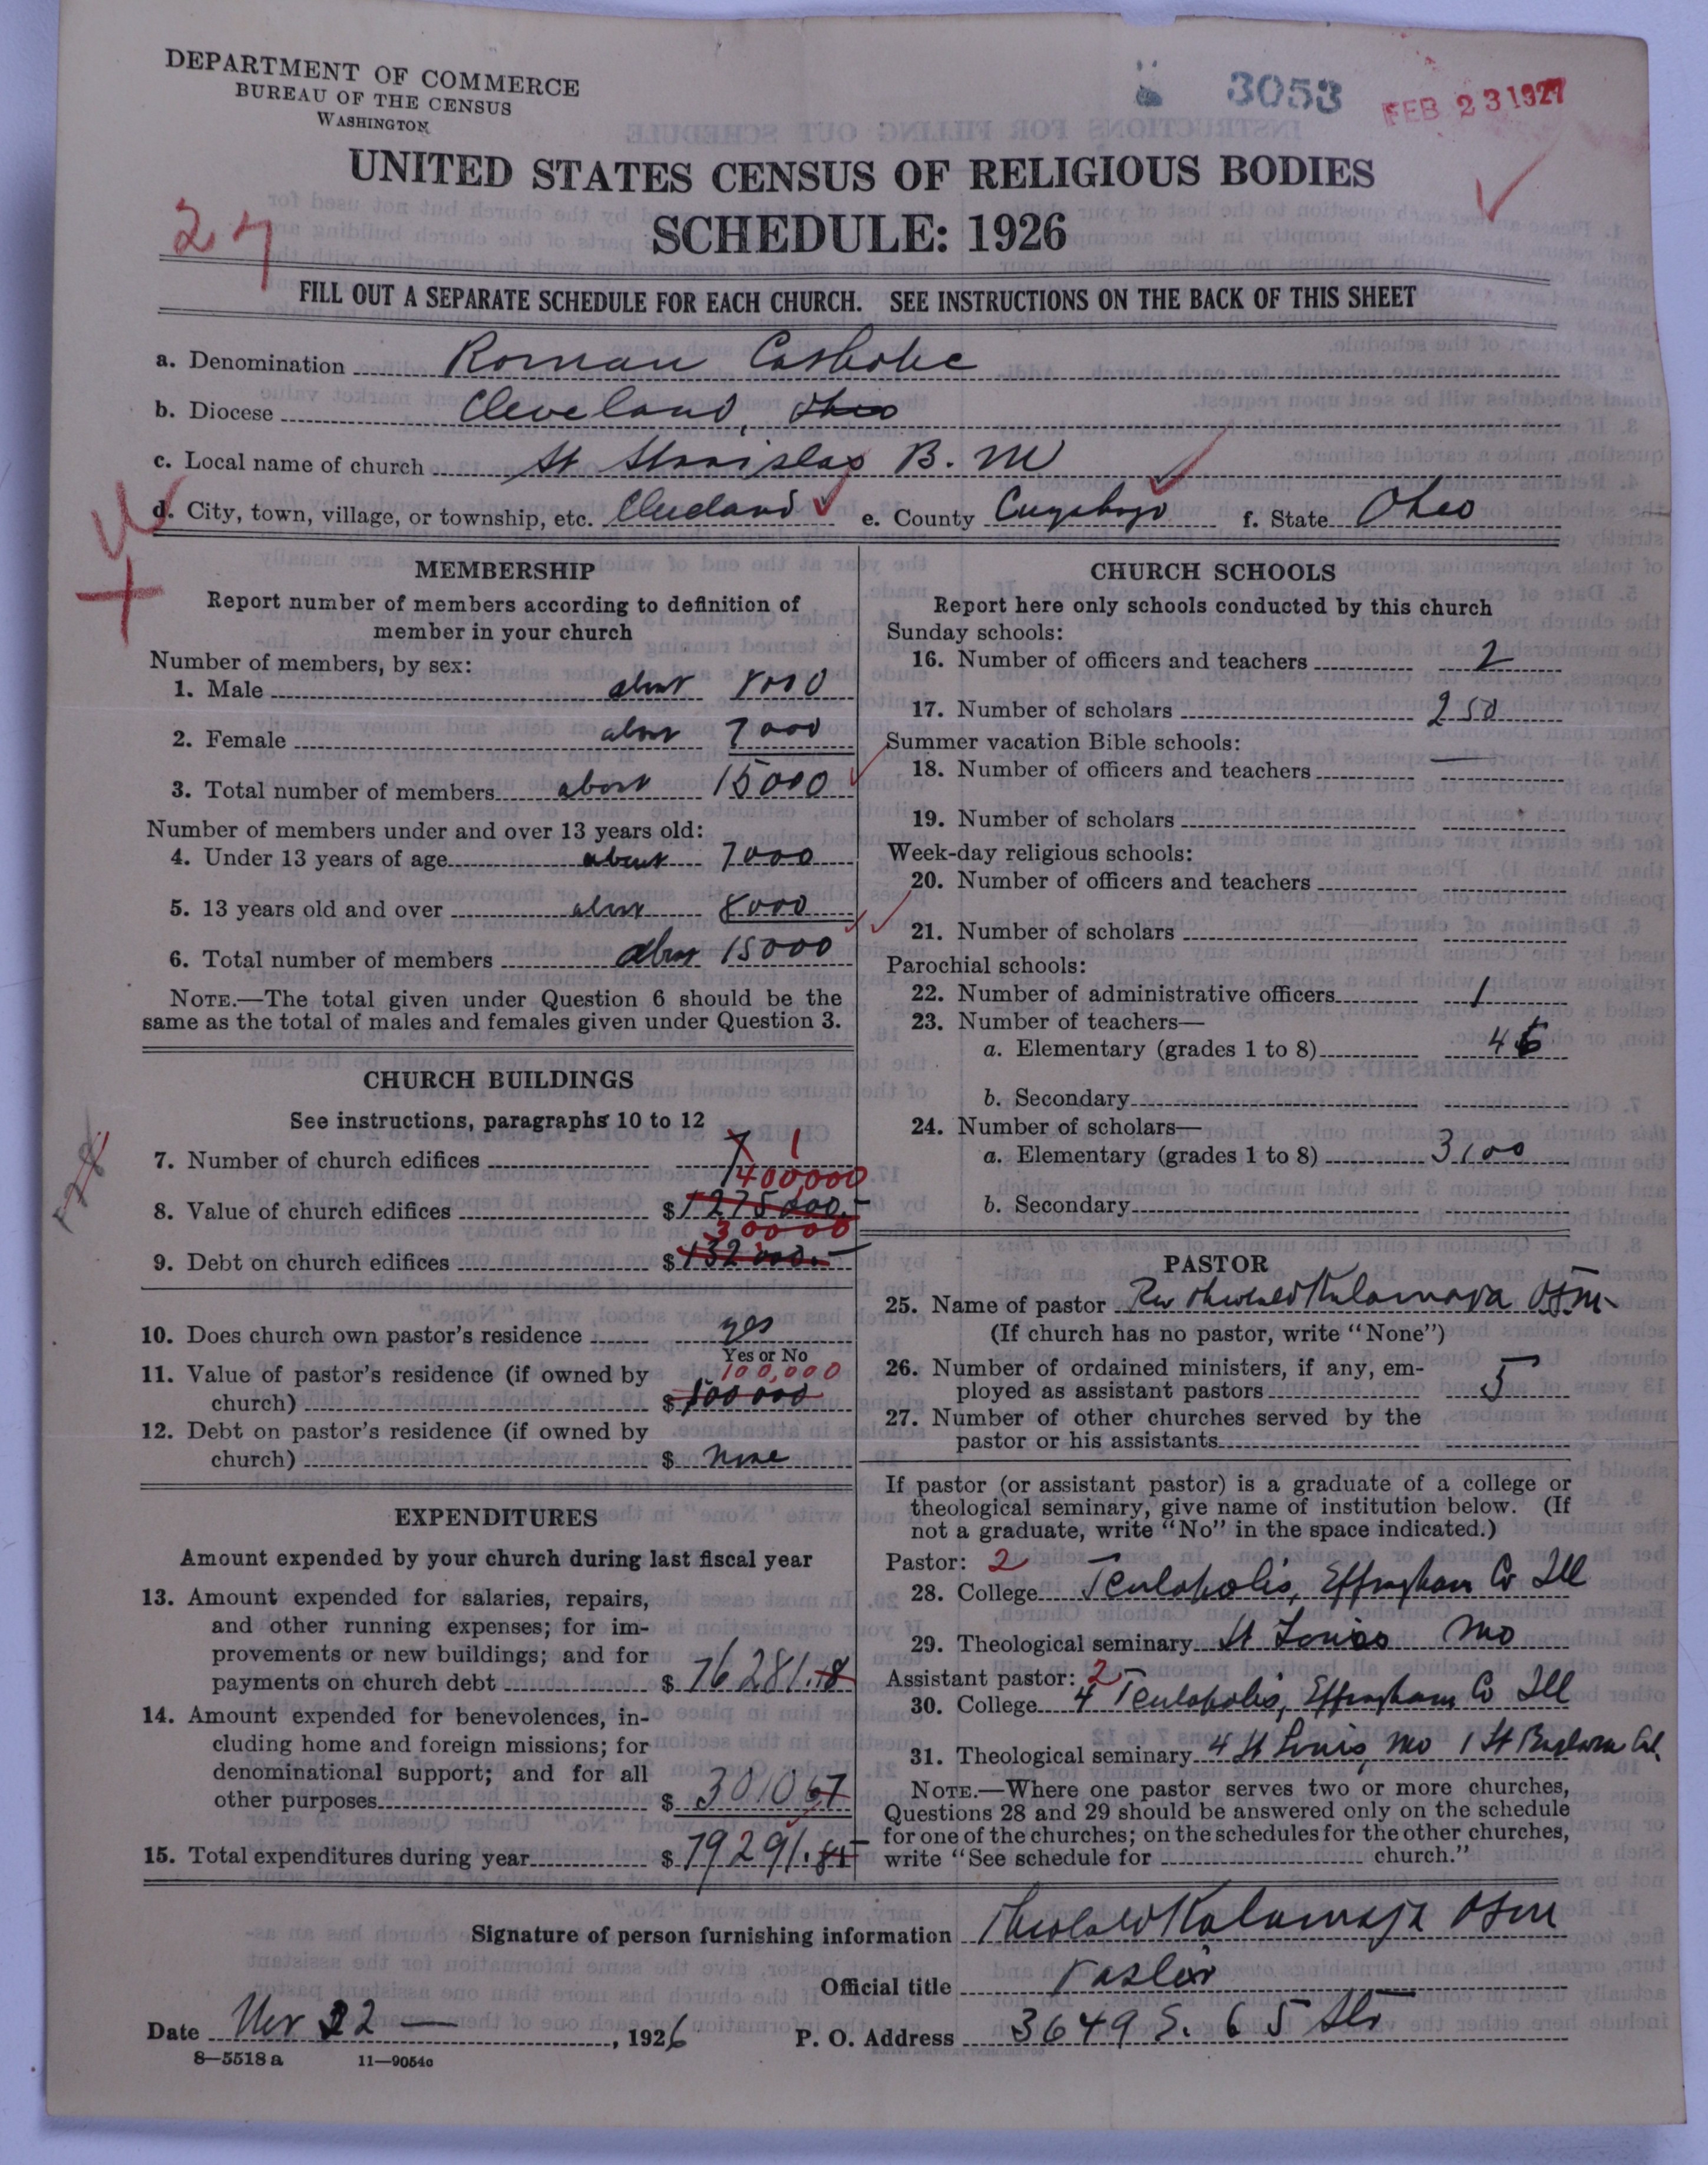 DEPARTMENT OF COMMERCE
BUREAU OF THE CENSUS
WASHINGTON
3053
FEB 23 1927
UNITED STATES CENSUS OF RELIGIOUS BODIES
27
SCHEDULE: 1926
FILL OUT A SEPARATE SCHEDULE FOR EACH CHURCH. SEE INSTRUCTIONS ON THE BACK OF THIS SHEET
a. Denomination Roman Catholic
b. Diocese Cleveland, Ohio
c. Local name of church St Stanislas B. M
d. City, town, village, or township, etc. Cleveland e. County Cuyahoga f. State Ohio
MEMBERSHIP
Report number of members according to definition of
member in your church
Number of members, by sex:
1. Male about 8000
2. Female about 7000
3. Total number of members about 15000
Number of members under and over 13 years old:
4. Under 13 years of age about 7000
5. 13 years old and over about 8000
6. Total number of members about 15000
NOTE.—The total given under Question 6 should be the
same as the total of males and females given under Question 3.
CHURCH BUILDINGS
See instructions, paragraphs 10 to 12
7. Number of church edifices 1
400,000
8. Value of church edifices $ 1275000.—
30000
9. Debt on church edifices $ 132000.—
10. Does church own pastor's residence yes
Yes or No
11. Value of pastor's residence (if owned by 100,000
church) $ 100000
12. Debt on pastor's residence (if owned by
church) $ none
EXPENDITURES
Amount expended by your church during last fiscal year
13. Amount expended for salaries, repairs,
and other running expenses; for im-
provements or new buildings; and for
payments on church debt $ 76281.18
14. Amount expended for benevolences, in-
cluding home and foreign missions; for
denominational support; and for all
other purposes $ 3010.67
15. Total expenditures during year $ 79291.85
CHURCH SCHOOLS
Report here only schools conducted by this church
Sunday schools:
16. Number of officers and teachers 2
17. Number of scholars 250
Summer vacation Bible schools:
18. Number of officers and teachers
19. Number of scholars
Week-day religious schools:
20. Number of officers and teachers
21. Number of scholars
Parochial schools:
22. Number of administrative officers 1
23. Number of teachers—
a. Elementary (grades 1 to 8) 46
b. Secondary
24. Number of scholars—
a. Elementary (grades 1 to 8) 3100
b. Secondary
PASTOR
25. Name of pastor Rev Theobald Kalamaja OFM
(If church has no pastor, write "None")
26. Number of ordained ministers, if any, em-
ployed as assistant pastors 5
27. Number of other churches served by the
pastor or his assistants
If pastor (or assistant pastor) is a graduate of a college or
theological seminary, give name of institution below. (If
not a graduate, write "No" in the space indicated.)
Pastor: 2
28. College Teutopolis, Effingham Co Ill
29. Theological seminary St Louis Mo
Assistant pastor: 2
30. College 4 Teutopolis, Effingham Co Ill
31. Theological seminary 4 St Louis, Mo 1 St Barbara Cal.
NOTE.—Where one pastor serves two or more churches,
Questions 28 and 29 should be answered only on the schedule
for one of the churches; on the schedules for the other churches,
write "See schedule for church."
Signature of person furnishing information Theobald Kalamaja OFM
Official title Pastor
Date Nov 22 — , 1926 P. O. Address 3649 S. 65 Str
8—5518 a 11—9054c